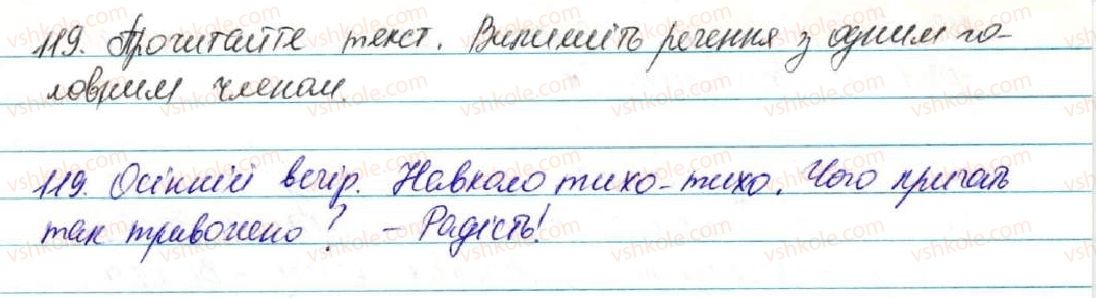 119. Прочитайте текст. Випишіть речення з одним го-
ловним членом.
119. Осінній вечір. Навколо тихо-тихо. Чого кричать
так тривожно? – Радість!